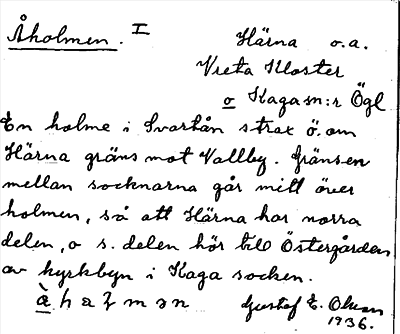 Åholmen. I Härna o.a.
Vreta Kloster
o Kaga sn:r Ögl
En holme i Svartån strax ö. om
Härna gräns mot Vallby. Gränsen
mellan socknarna går mitt över
holmen, så att Härna har norra
delen, o s. delen hör till Östergården
av kyrkbyn i Kaga socken.
Gustaf E. Olson
1936.